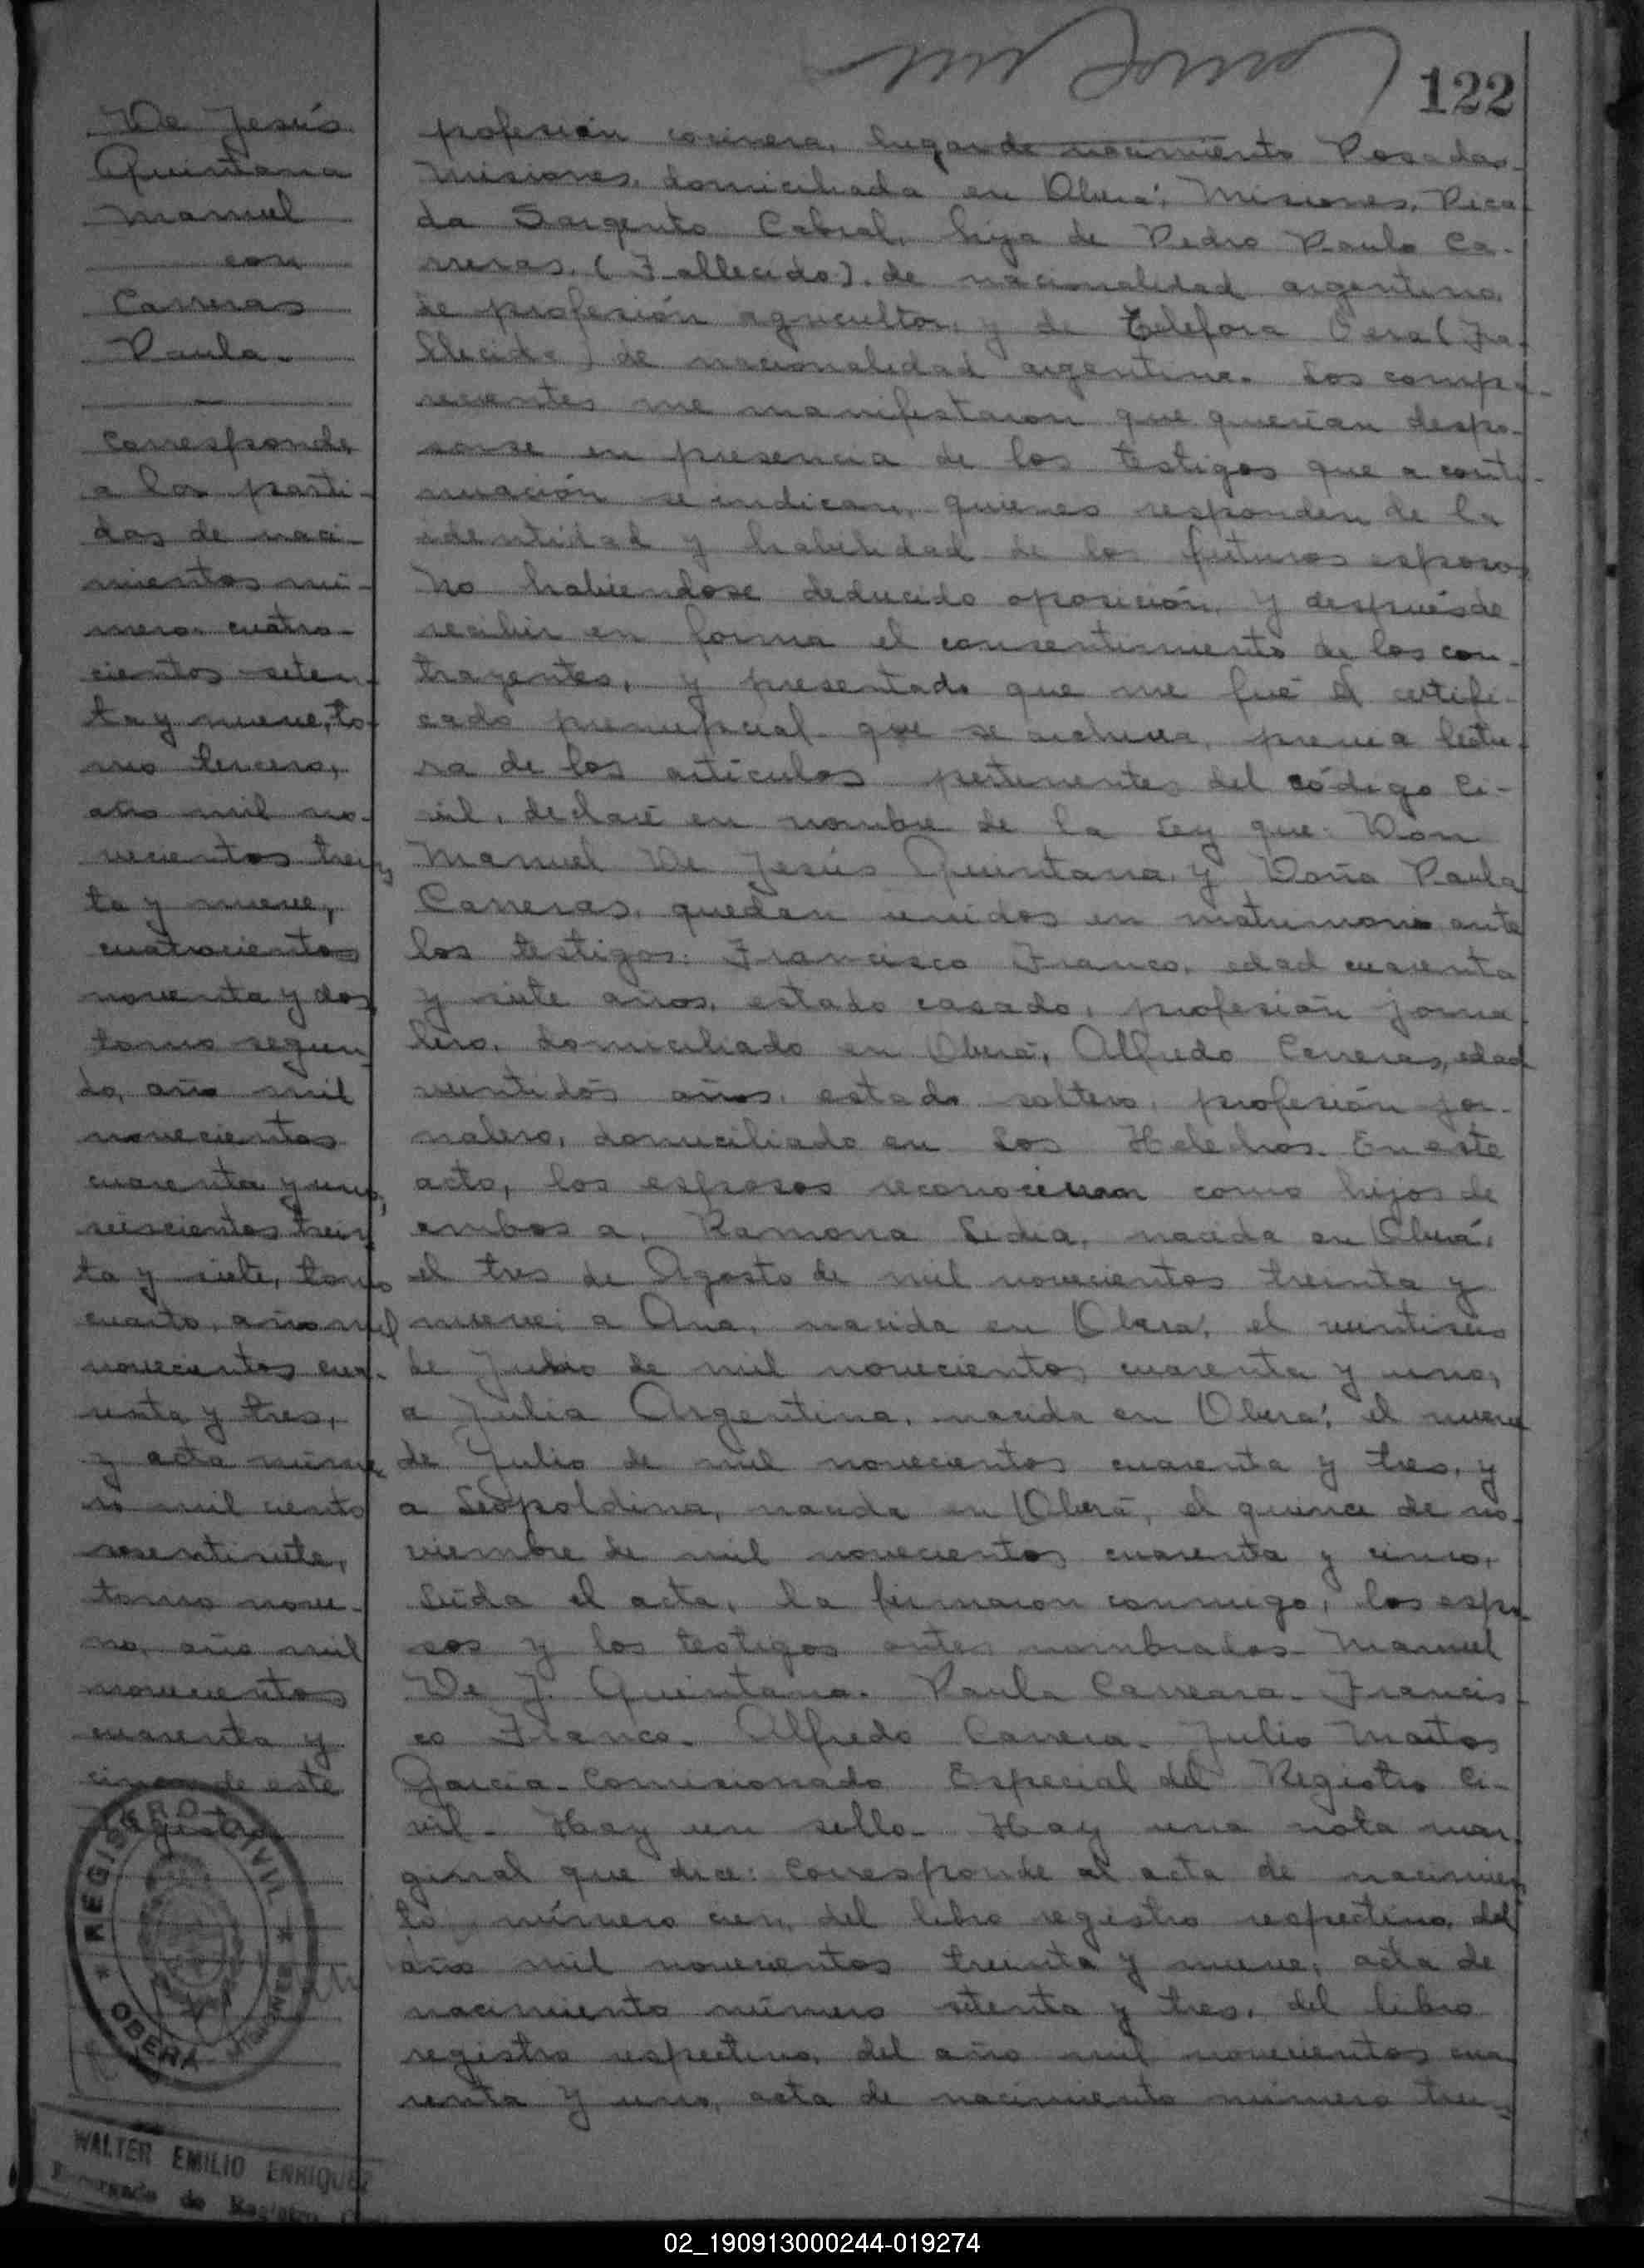 122
De Jesús
Quintana
Manuel
con
Carreras
Paula.
Corresponde
a las parti-
das de naci-
mientos nú-
mero: cuatro-
cientos seten-
ta y nueve, to-
mo tercero,
año mil no-
vecientos trein-
ta y nueve,
cuatrocientos
noventa y dos
tomo segun-
do, año mil
novecientos
cuarenta y uno,
seiscientos trein-
ta y siete, tomo
cuarto, año mil
novecientos cua-
renta y tres,
y acta núme-
ro mil ciento
sesentisiete,
tomo nove-
no, año mil
novecientos
cuarenta y
cinco de este
Registro
REGISTRO CIVIL
OBERA
WALTER EMILIO ENRIQUEZ
Encargado de Registro
profesión cocinera, lugar de nacimiento Posadas-
Misiones, domiciliada en Oberá, Misiones, Pica-
da Sargento Cabral, hija de Pedro Paulo Ca-
rreras, (Fallecido), de nacionalidad argentino,
de profesión agricultor, y de Telefora Vera (Fa-
llecida) de nacionalidad argentina. Los compa-
recientes me manifestaron que querían despo-
sarse en presencia de los testigos que a conti-
nuación se indican, quienes responden de la
identidad y habilidad de los futuros esposos
No habiéndose deducido oposición, y después de
recibir en forma el consentimiento de los con-
trayentes, y presentado que me fué el certifi-
cado prenupcial que se archiva, previa lectu-
ra de los artículos pertinentes del código Ci-
vil, declaré en nombre de la Ley que: Don
Manuel De Jesús Quintana, y Doña Paula
Carreras, quedan unidos en matrimonio ante
los testigos: Francisco Franco, edad cuarenta
y siete años, estado casado, profesión jorna-
lero, domiciliado en Oberá, Alfredo Carreras, edad
veintidós años, estado soltero, profesión jor-
nalero, domiciliado en Los Helechos. En este
acto, los esposos reconocieron como hijos de
ambos a, Ramona Lidia, nacida en Oberá,
el tres de Agosto de mil novecientos treinta y
nueve; a Ana, nacida en Oberá, el veintiseis
de Julio de mil novecientos cuarenta y uno,
a Julia Argentina, nacida en Oberá, el nueve
de Julio de mil novecientos cuarenta y tres, y
a Leopoldina, nacida en Oberá, el quince de no-
viembre de mil novecientos cuarenta y cinco,
Leída el acta, la firmaron conmigo, los espo-
sos y los testigos antes nombrados- Manuel
De J. Quintana. Paula Carrera. Francis-
co Franco. Alfredo Carrera. Julio Martos
García. Comisionado Especial del Registro Ci-
vil. Hay un sello. Hay una nota mar-
ginal que dice: Corresponde al acta de nacimien-
to número cien, del libro registro respectivo, del
año mil novecientos treinta y nueve, acta de
nacimiento número setenta y tres, del libro
registro respectivo, del año mil novecientos cua-
renta y uno, acta de nacimiento número trein-
02_190913000244-019274